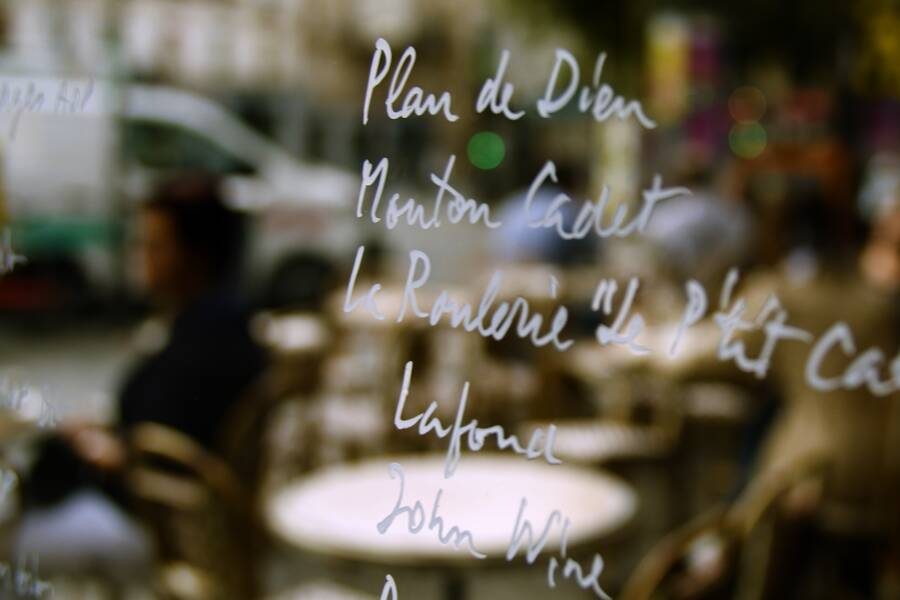 Plan de Dieu
Mouton Cadet
La Roulerie "Le P'tit
Lafond
John Wine